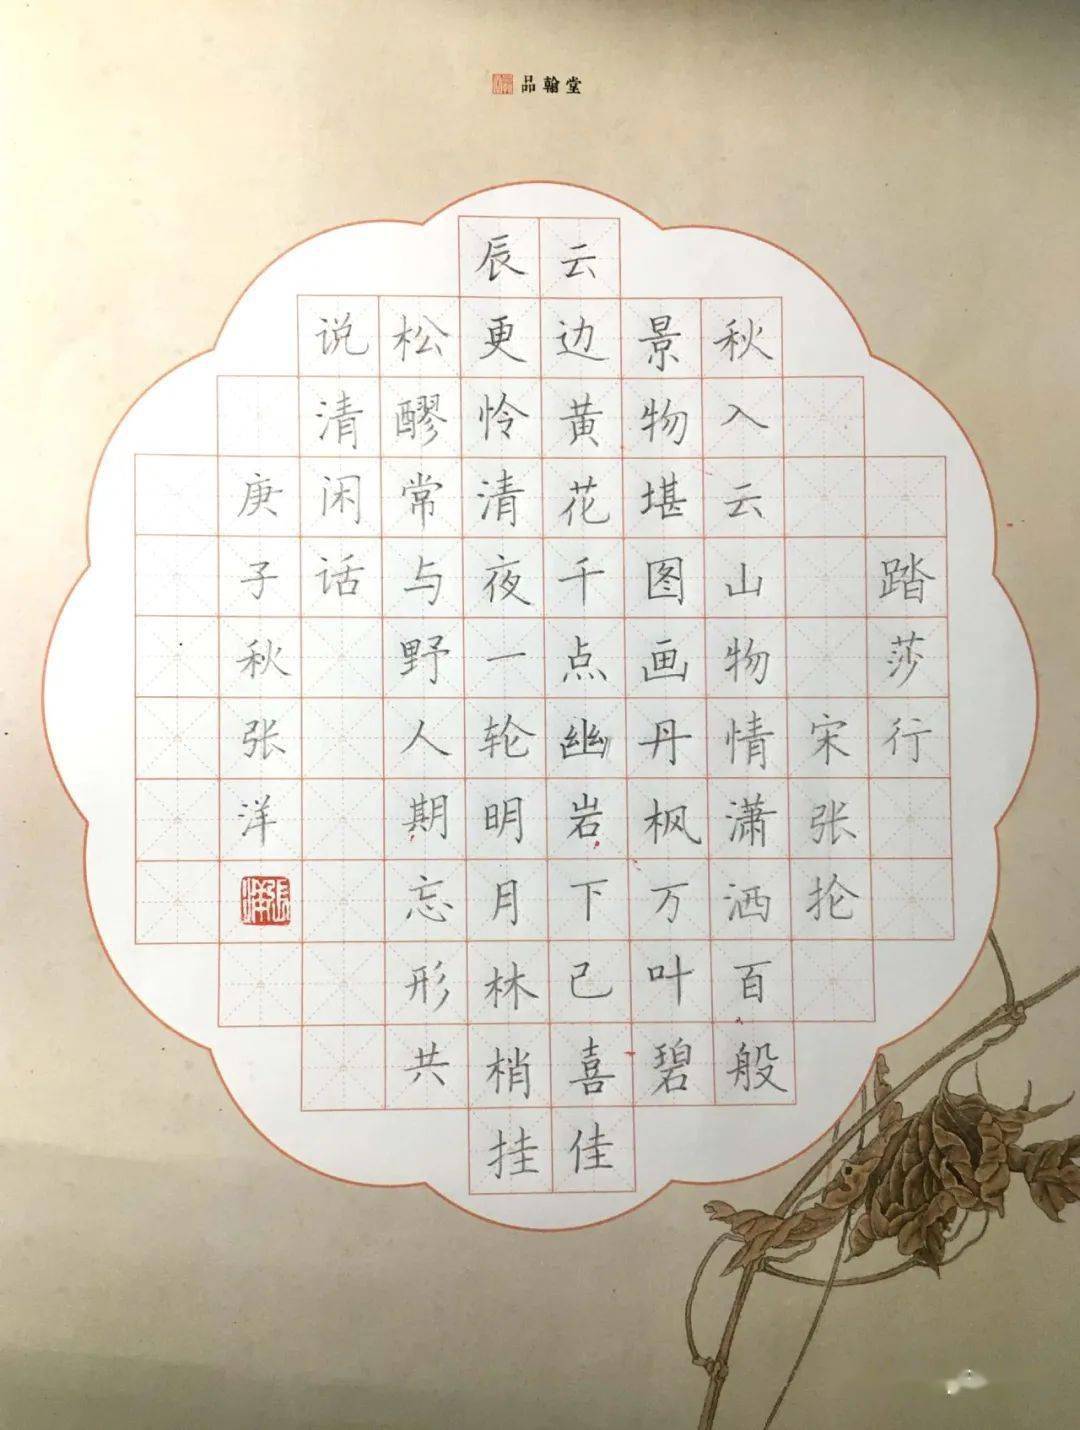 品翰堂
踏莎行
宋张抡
秋入云山物情潇洒百般
景物堪图画丹枫万叶碧
云边黄花千点幽岩下已喜佳
辰更怜清夜一轮明月林梢挂
松醪常与野人期忘形共
说清闲话
庚子秋张洋